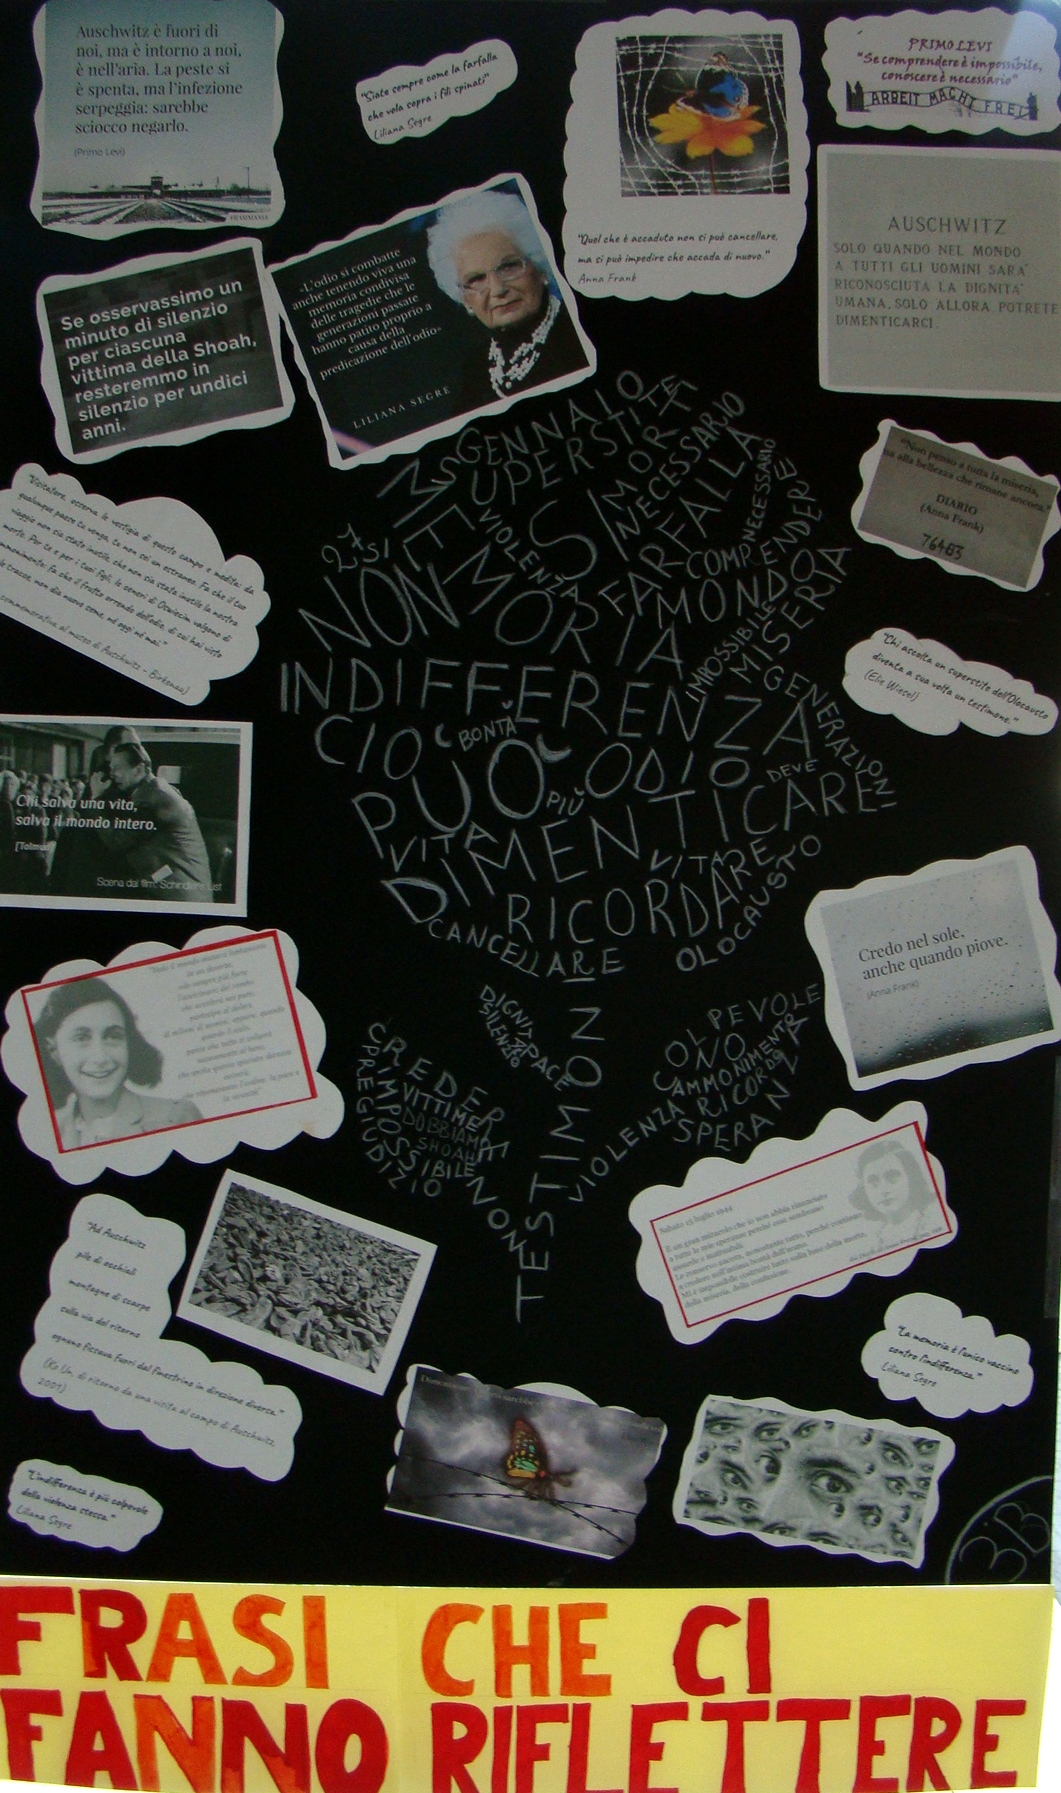 Auschwitz è fuori di
noi, ma è intorno a noi,
è nell'aria. La peste si
è spenta, ma l'infezione
serpeggia: sarebbe
sciocco negarlo.
(Primo Levi)
"Siate sempre come la farfalla
che vola sopra i fili spinati"
Liliana Segre
"Quel che è accaduto non si può cancellare,
ma si può impedire che accada di nuovo."
Anna Frank
PRIMO LEVI
"Se comprendere è impossibile,
conoscere è necessario"
ARBEIT MACHT FREI
AUSCHWITZ
SOLO QUANDO NEL MONDO
A TUTTI GLI UOMINI SARA'
RICONOSCIUTA LA DIGNITA'
UMANA, SOLO ALLORA POTRETE
DIMENTICARCI.
Se osservassimo un
minuto di silenzio
per ciascuna
vittima della Shoah,
resteremmo in
silenzio per undici
anni.
«L'odio si combatte
anche tenendo viva una
memoria condivisa
delle tragedie che le
generazioni passate
hanno patito proprio a
causa della
predicazione dell'odio»
LILIANA SEGRE
"Non penso a tutta la miseria,
ma alla bellezza che rimane ancora."
DIARIO
(Anna Frank)
"Visitatore, osserva le vestigia di questo campo e medita: da
qualunque paese tu venga, tu non sei un estraneo. Fa che il tuo
viaggio non sia stato inutile, che non sia stata inutile la nostra
morte. Per te e per i tuoi figli, le ceneri di Oswiecim valgano di
ammonimento: fa che il frutto orrendo dell'odio, di cui hai visto
le tracce, non dia nuovo seme, né oggi né mai."
commemorativa al museo di Auschwitz - Birkenau)
"Chi ascolta un superstite dell'Olocausto
diventa a sua volta un testimone."
(Elie Wiesel)
Chi salva una vita,
salva il mondo intero.
[Talmud]
Scena dal film: Schindler's List
GENNAIO
SUPERSTITE
MORTE
NECESSARIO
NECESSARIO
SI
27
SI
MEMORIA
VIOLENZA
FARFALLA
COMPRENDERE
NON
MONDO
IMPOSSIBILE
MISERIA
INDIFFERENZA
GENERAZIONI
CIO
BONTÀ
PUO
ODIO
DEVE
PIÙ
VITA
DIMENTICARE
VITA
RICORDARE
OLOCAUSTO
CANCELLARE
TESTIMONI
DIGNITÀ
SILENZIO
PACE
CREDERE
VITTIME
DOBBIAMO
SHOAH
IMPOSSIBILE
PREGIUDIZIO
NON
COLPEVOLE
ONO
AMMONIMENTO
RICORDO
VIOLENZA
SPERANZA
Credo nel sole,
anche quando piove.
(Anna Frank)
Sabato 15 luglio 1944
È un gran miracolo che io non abbia rinunciato
a tutte le mie speranze perché esse sembrano
assurde e inattuabili.
Le conservo ancora, nonostante tutto, perché continuo
a credere nell'intima bontà dell'uomo.
Mi è impossibile costruire tutto sulla base della morte,
della miseria, della confusione.
"Ad Auschwitz
pile di occhiali
montagne di scarpe
sulla via del ritorno
ognuno fissava fuori dal finestrino in direzione diversa."
(Ko Un, di ritorno da una visita al campo di Auschwitz,
"La memoria è l'unico vaccino
contro l'indifferenza."
Liliana Segre
"L'indifferenza è più colpevole
della violenza stessa."
Liliana Segre
3B
FRASI CHE CI
FANNO RIFLETTERE